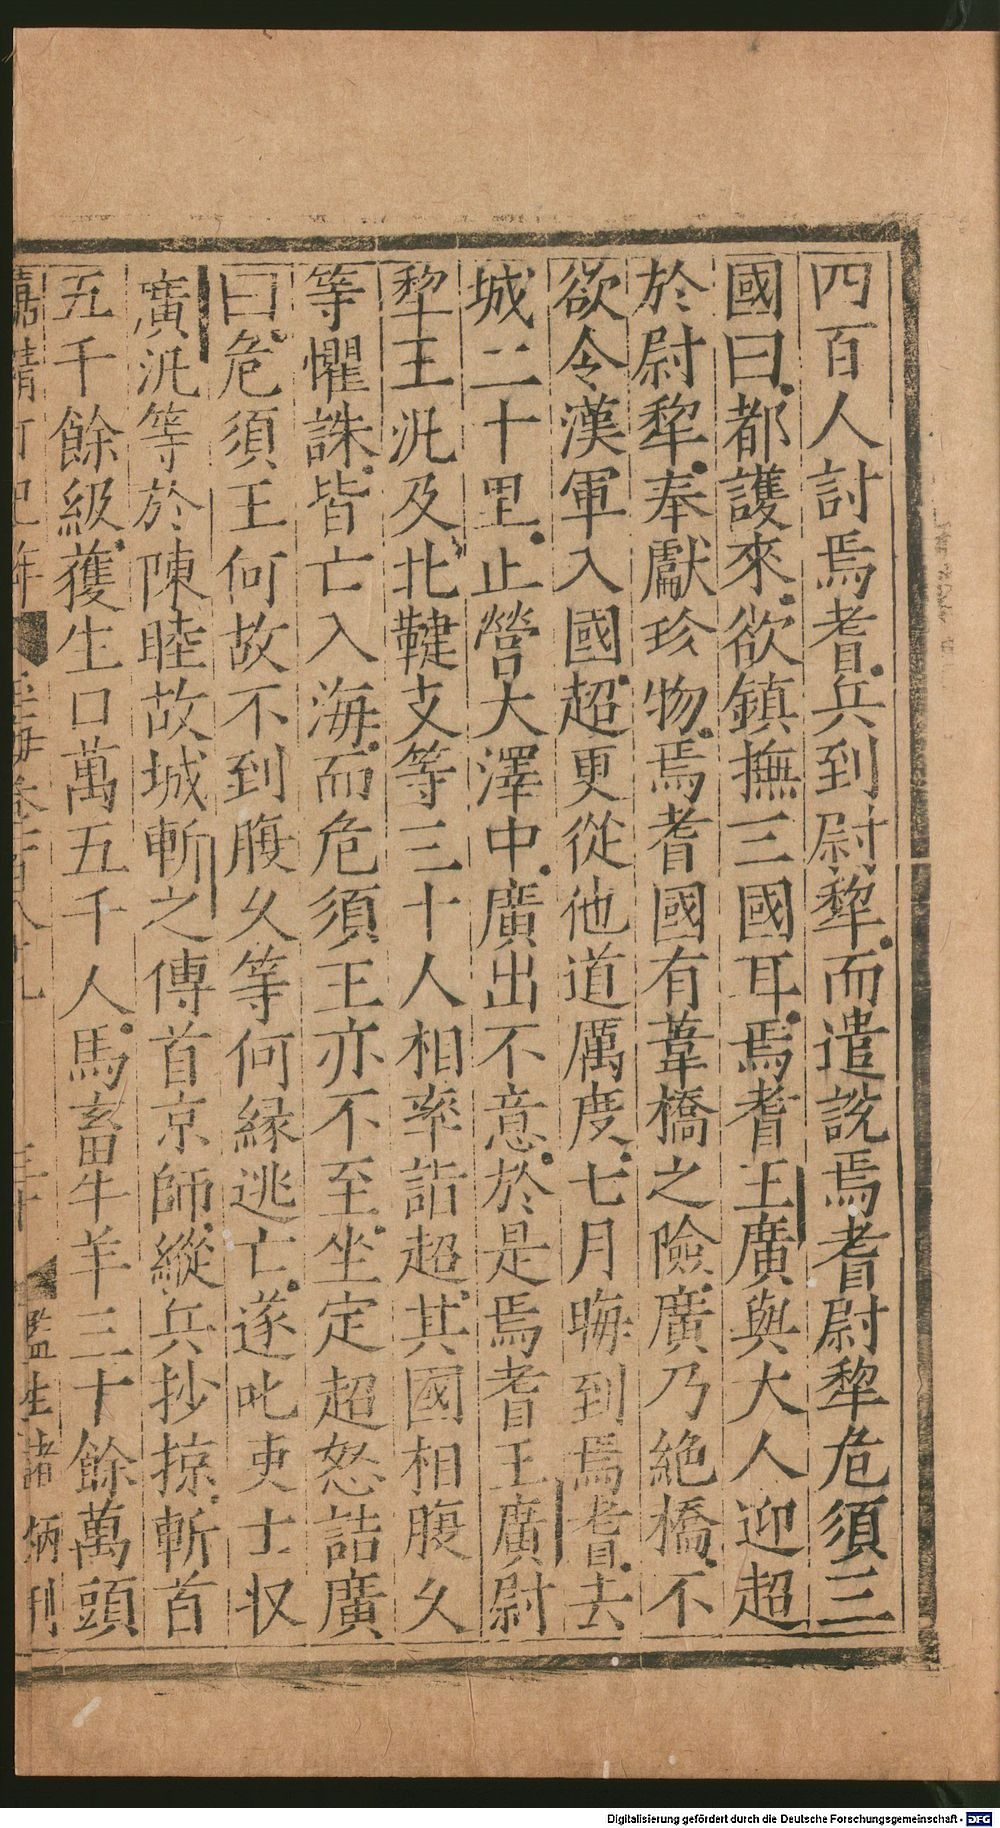 四百人討焉耆兵到尉犂而遣說焉耆尉犂危須三
國曰都護來欲鎮撫三國耳焉耆王廣與大人迎超
於尉犂奉獻珍物焉耆國有葦橋之險廣乃絶橋不
欲令漢軍入國超更從他道厲度七月晦到焉耆去
城二十里止營大澤中廣出不意於是焉耆王廣尉
犂王汎及北鞬支等三十人相率詣超其國相腹久
等懼誅皆亡入海而危須王亦不至坐定超怒詰廣
曰危須王何故不到腹久等何縁逃亡遂叱吏士収
廣汎等於陳睦故城斬之傳首京師縱兵抄掠斬首
五千餘級獲生口萬五千人馬畜牛羊三十餘萬頭
監生諸炳刊
Digitalisierung gefördert durch die Deutsche Forschungsgemeinschaft - DFG